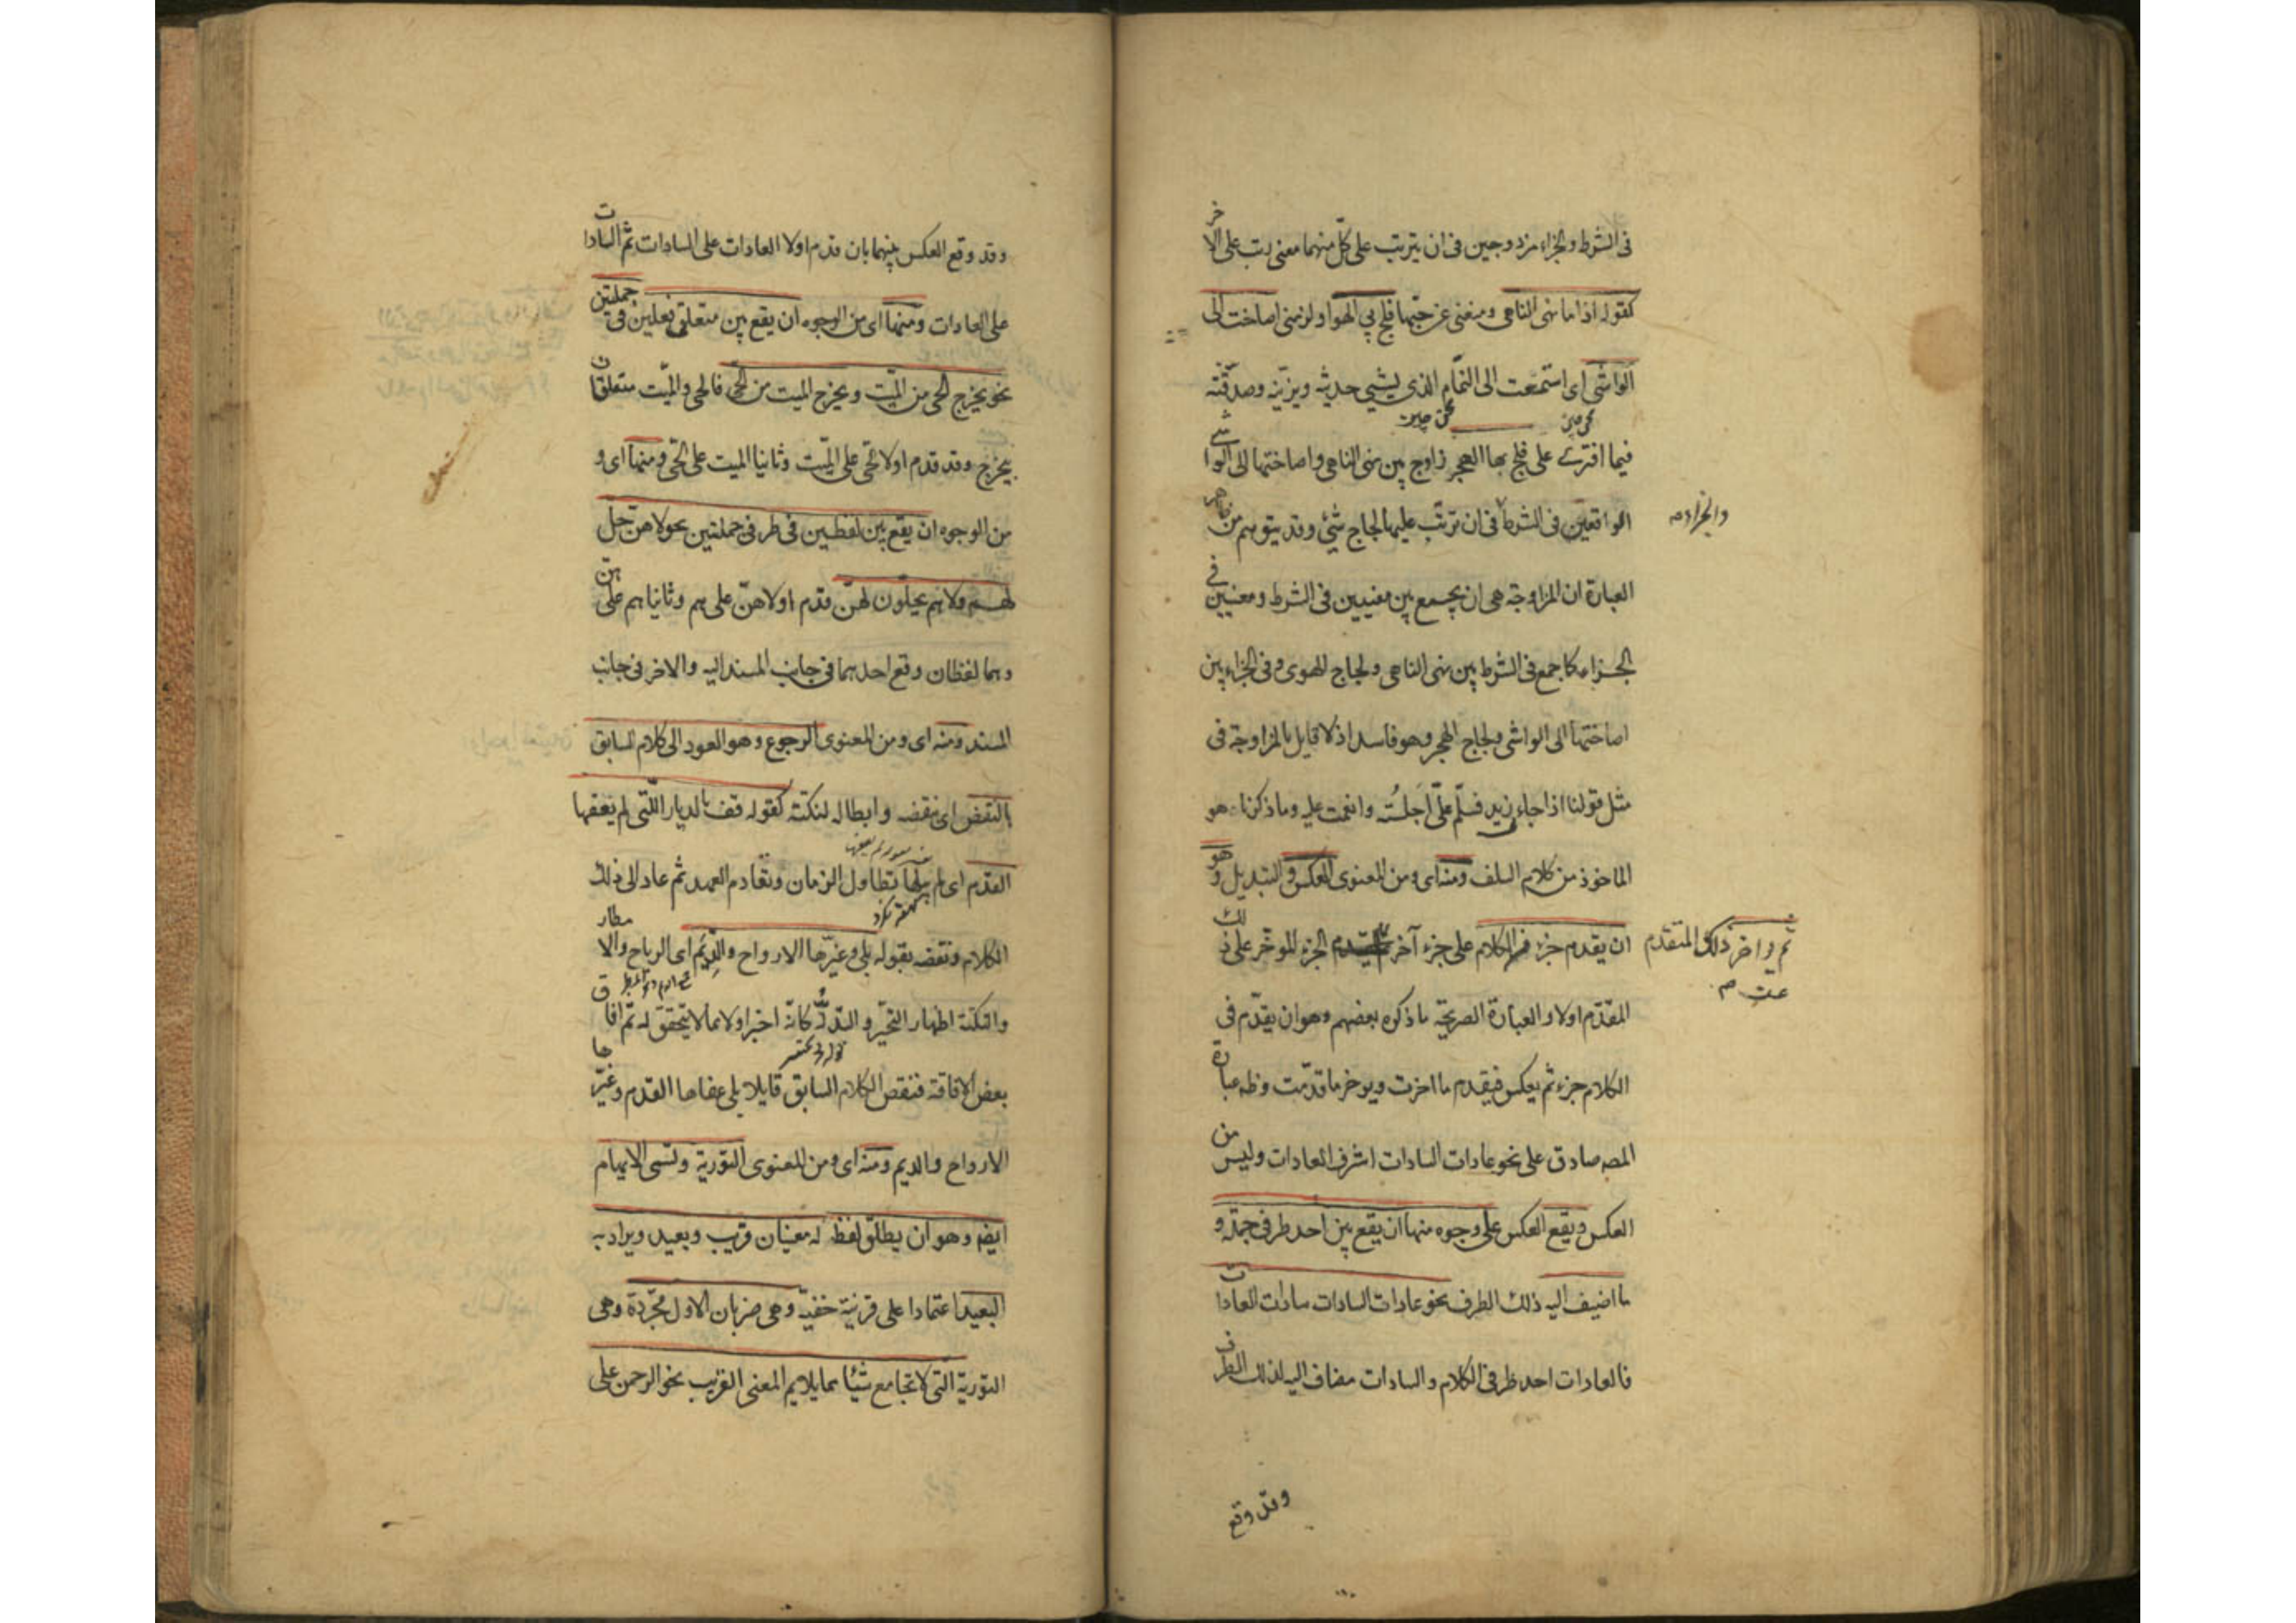 فى الشرط والجزاء مزدوجين فى ان يترتب على كل منهما معنى رتب على الاخر
كقوله اذا ما نهى الناهى ومنعنى عن حبها فلج بي الهوا ولزمنى اصاخت الى
الواشى اى استمعت الى النمام الذى يشيى حديثه ويزينه وصدقته
فيما افترى على فلج بها الهجر زاوج بين نهى الناهى واصاختها الى الواشى
الواقعين فى الشرط فى ان ترتب عليهما لجاج شئ وقد يتوهم من ظاهر
والجزاء صح
العبارة ان المزاوجة هى ان يجمع بين معنيين فى الشرط ومعنيين فى
الجزاء كما جمع فى الشرط بين نهى الناهى ولجاج الهوى وفى الجزاء بين
اصاختها الى الواشى ولجاج الهجر وهو فاسد اذ لا قايل بالمزاوجة فى
مثل قولنا اذا جاء زيد فسلم على اجلسته وانعمت عليه وما ذكرنا هو
الماخوذ من كلام السلف ومنه اى ومن المعنوى العكس والتبديل وهو
ان يقدم جزء من الكلام على جزء آخر الجزء المؤخر على ذلك
ثم واخر ذلك المتقدم
المقدم اولا والعبارة الصريحة ما ذكره بعضهم وهو ان يقدم فى
الكلام جزء ثم يعكس فيقدم ما اخرت ويوخر ما قدمت وظه عبارة
المصه صادق على نحو عادات السادات اشرف العادات وليس من
العكس ويقع العكس على وجوه منها ان يقع بين احد طرفى جملة و
ما اضيف اليه ذلك الطرف نحو عادات السادات سادات العادات
فالعادات احد طرفى الكلام والسادات مضاف اليه لذلك الطرف
وقد وقع
وقد وقع العكس بينهما بان قدم اولا العادات على السادات ثم السادات
على العادات ومنها اى من الوجوه ان يقع بين متعلقى فعلين فى جملتين
نحو يخرج الحى من الميت ويخرج الميت من الحى فالحى والميت متعلقان
بيخرج وقد قدم اولا الحى على الميت وثانيا الميت على الحى ومنها اى و
من الوجوه ان يقع بين لفظين فى طرفى جملتين نحو لا هن حل
لهم ولا هم يحلون لهن قدم اولا هن على هم وثانيا هم على هن
وهما لفظان وقع احدهما فى جانب المسند اليه والاخر فى جانب
المسند ومنه اى ومن المعنوى الرجوع وهو العود الى كلام السابق
بالنقض اى نقضه وابطاله لنكتة كقوله قف بالديار اللتى لم يعفها
القدم اى لم يبلها تطاول الزمان وتقادم العهد ثم عاد الى ذلك
الكلام ونقضه بقوله بلى وغيرها الارواح والديم اى الرياح والامطار
والنكتة اظهار التحير والتدله كانه اخبر اولا بما لا يتحقق له ثم افاق
بعض الافاقة فنقض الكلام السابق قايلا بلى عفاها القدم وغيرها
الارواح والديم ومنه اى ومن المعنوى التورية وتسمى الايهام
ايضا وهو ان يطلق لفظ له معنيان قريب وبعيد ويراد به
البعيد اعتمادا على قرينة خفية وهى ضربان الاول مجردة وهى
التورية التى لا تجامع شيئا مما يلايم المعنى القريب نحو الرحمن على